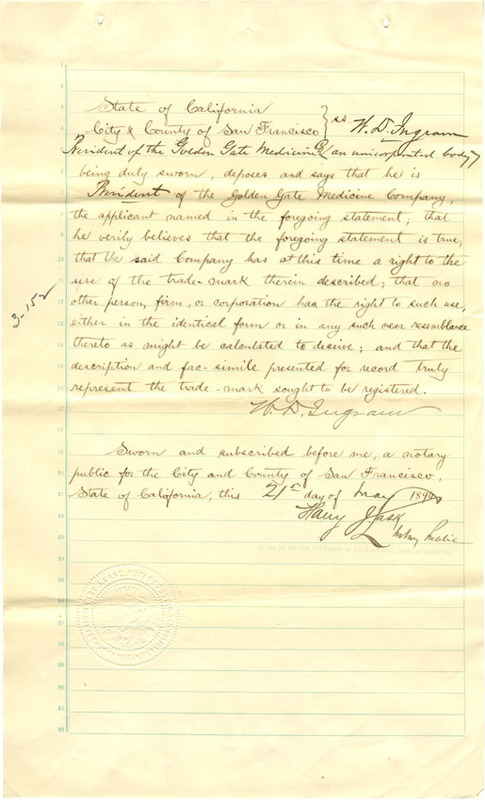 State of California
City & County of San Francisco } ss W. D. Ingram
President of the Golden Gate Medicine Co an unincorporated body
being duly sworn, deposes and says that he is
President of the Golden Gate Medicine Company,
the applicant named in the foregoing statement; that
he verily believes that the foregoing statement is true;
that the said Company has at this time a right to the
use of the trade-mark therein described; that no
other person, firm, or corporation has the right to such use,
either in the identical form or in any such near resemblance
thereto as might be calculated to deceive; and that the
description and fac-simile presented for record truly
represent the trade-mark sought to be registered.
W. D. Ingram
Sworn and subscribed before me, a notary
public for the City and County of San Francisco,
State of California, this 21st day of May
Harry J. Lask
Notary Public
3-152